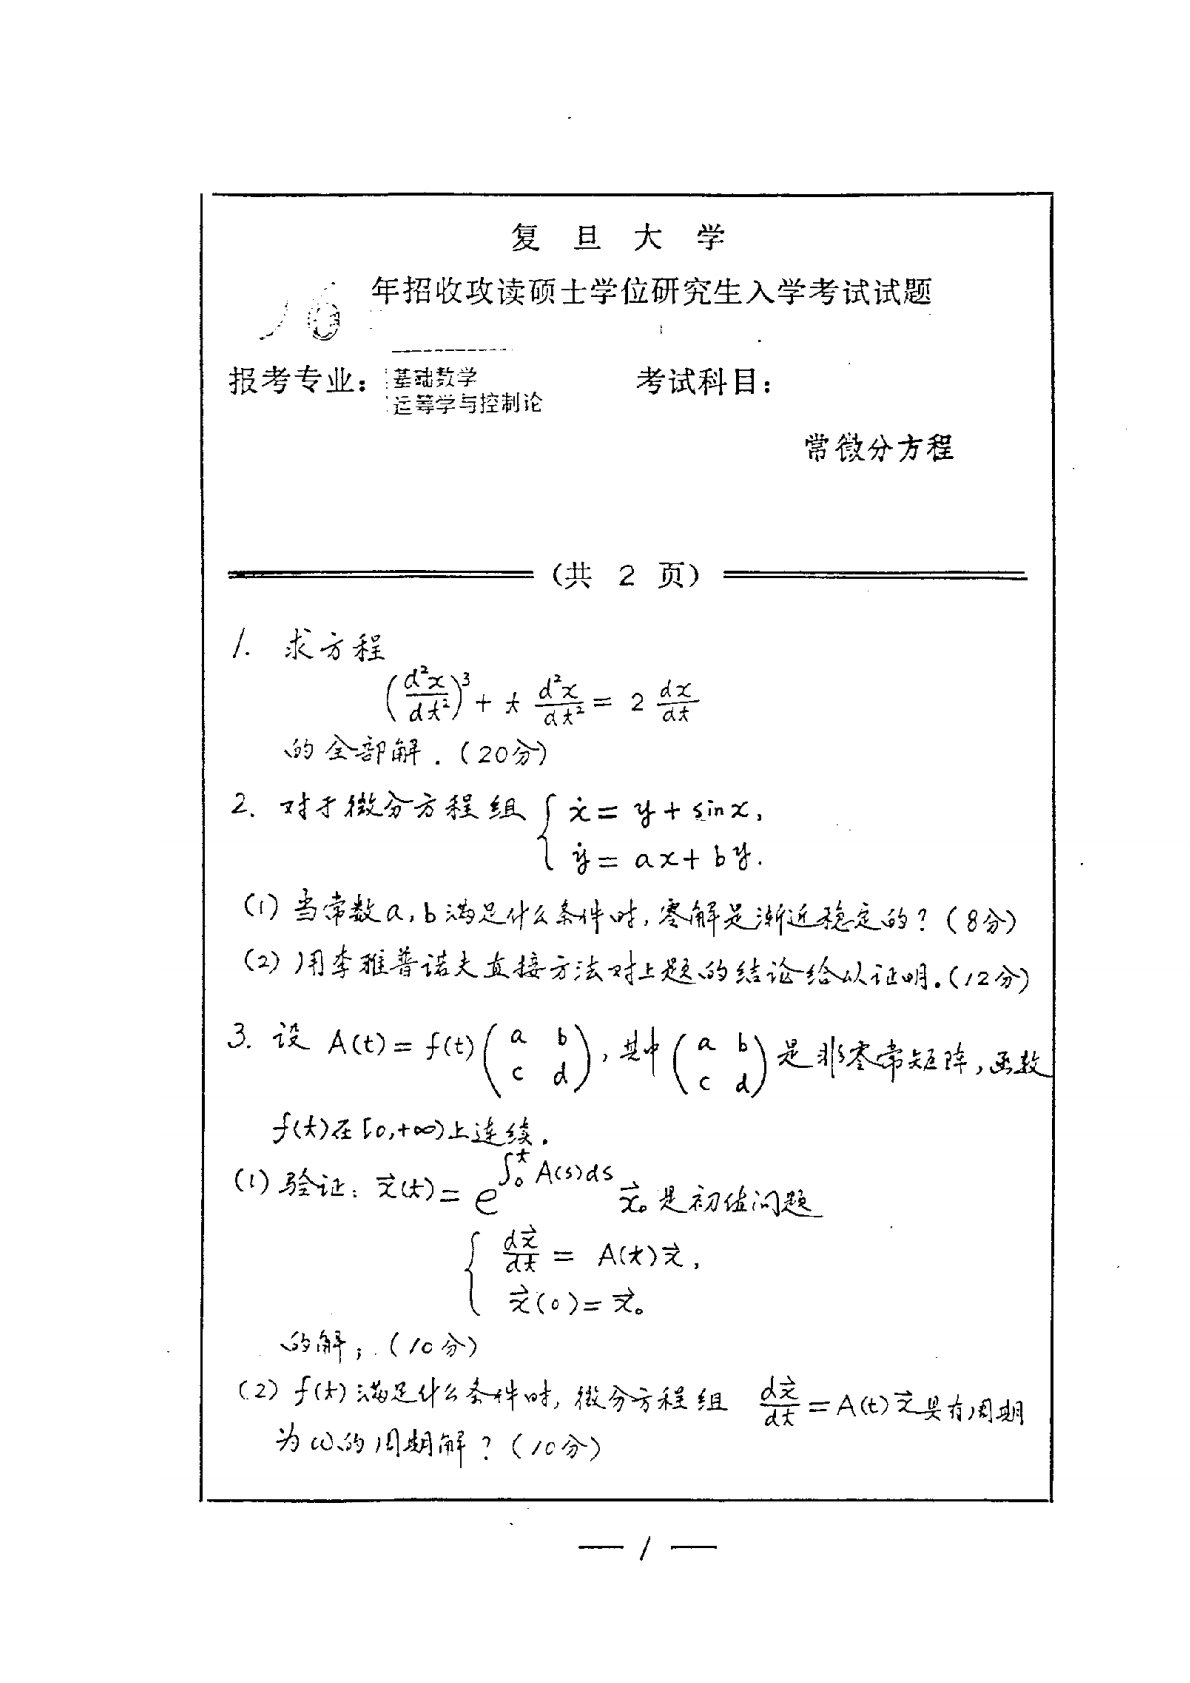 复 旦 大 学
年招收攻读硕士学位研究生入学考试试题
报考专业: 基础数学 考试科目:
运筹学与控制论
常微分方程
(共 2 页)
1. 求方程
(d²x/dt²)³ + t d²x/dt² = 2 dx/dt
的全部解.(20分)
2. 对于微分方程组 { ẋ = y + sinx,
ẏ = ax + by.
(1) 当常数a,b满足什么条件时,零解是渐近稳定的?(8分)
(2) 用李雅普诺夫直接方法对上题的结论给以证明.(12分)
3. 设 A(t) = f(t) (a b; c d), 其中 (a b; c d) 是非零常矩阵,函数
f(t)在[0,+∞)上连续.
(1) 验证: x⃗(t) = e^{∫₀ᵗ A(s)ds} x⃗₀ 是初值问题
{ dx⃗/dt = A(t)x⃗,
x⃗(0) = x⃗₀
的解;(10分)
(2) f(t)满足什么条件时,微分方程组 dx⃗/dt = A(t)x⃗具有周期
为ω的周期解?(10分)
— 1 —